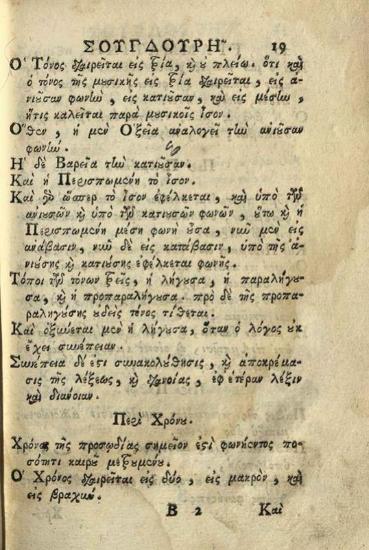 ΣΟΥΓΔΟΥΡΗ͂. 19
Ὁ Τόνος διαιρεῖται εἰς τρία, καὶ οὐ πλείω. ὅτι καὶ
ὁ τόνος τῆς μυσικῆς εἰς τρία διαιρεῖται, εἰς ἀ-
νιοῦσαν φωνὴν, εἰς κατιοῦσαν, καὶ εἰς μέσην,
ἥτις καλεῖται παρὰ μουσικοῖς ἶσον.
Ὅθεν, ἡ μὲν Ὀξεῖα ἀναλογεῖ τὴν ἀνιοῦσαν
φωνὴν.
Ἡ δὲ Βαρεῖα τὴν κατιοῦσαν.
Καὶ ἡ Περισπωμένη τὸ ἶσον.
Καὶ γὸ ὥσπερ τὸ ἶσον ἐφέλκεται, καὶ ὑπὸ τῶν
ἀνιουσῶν καὶ ὑπὸ τῶν κατιουσῶν φωνῶν, οὕτω καὶ ἡ
Περισπωμένη μέση φωνὴ οὖσα, νῦν μὲν εἰς
ἀνάβασιν, νῦν δὲ εἰς κατάβασιν, ὑπὸ τῆς ἀ-
νιούσης καὶ κατιούσης ἐφέλκεται φωνῆς.
Τόποι τῶν τόνων τρεῖς, ἡ λήγουσα, ἡ παραλήγου-
σα, καὶ ἡ προπαραλήγουσα. πρὸ δὲ τῆς προπα-
ραληγούσης οὐδεὶς τόνος τίθεται.
Καὶ ὀξύνεται μὲν ἡ λήγουσα, ὅταν ὁ λόγος οὐκ
ἔχει συνέπειαν.
Συνέπεια δέ ἐστι συνακολούθησις, καὶ ἀποκρέμα-
σις τῆς λέξεως, καὶ διανοίας, ἐφ' ἑτέραν λέξιν
καὶ διάνοιαν.
Περὶ Χρόνου.
Χρόνος τῆς προσῳδίας σημεῖόν ἐστι φωνήεντος πο-
σότητι καιροῦ μετρουμένου.
Ὁ Χρόνος διαιρεῖται εἰς δύο, εἰς μακρὸν, καὶ
εἰς βραχὺν.
B 2 Καὶ